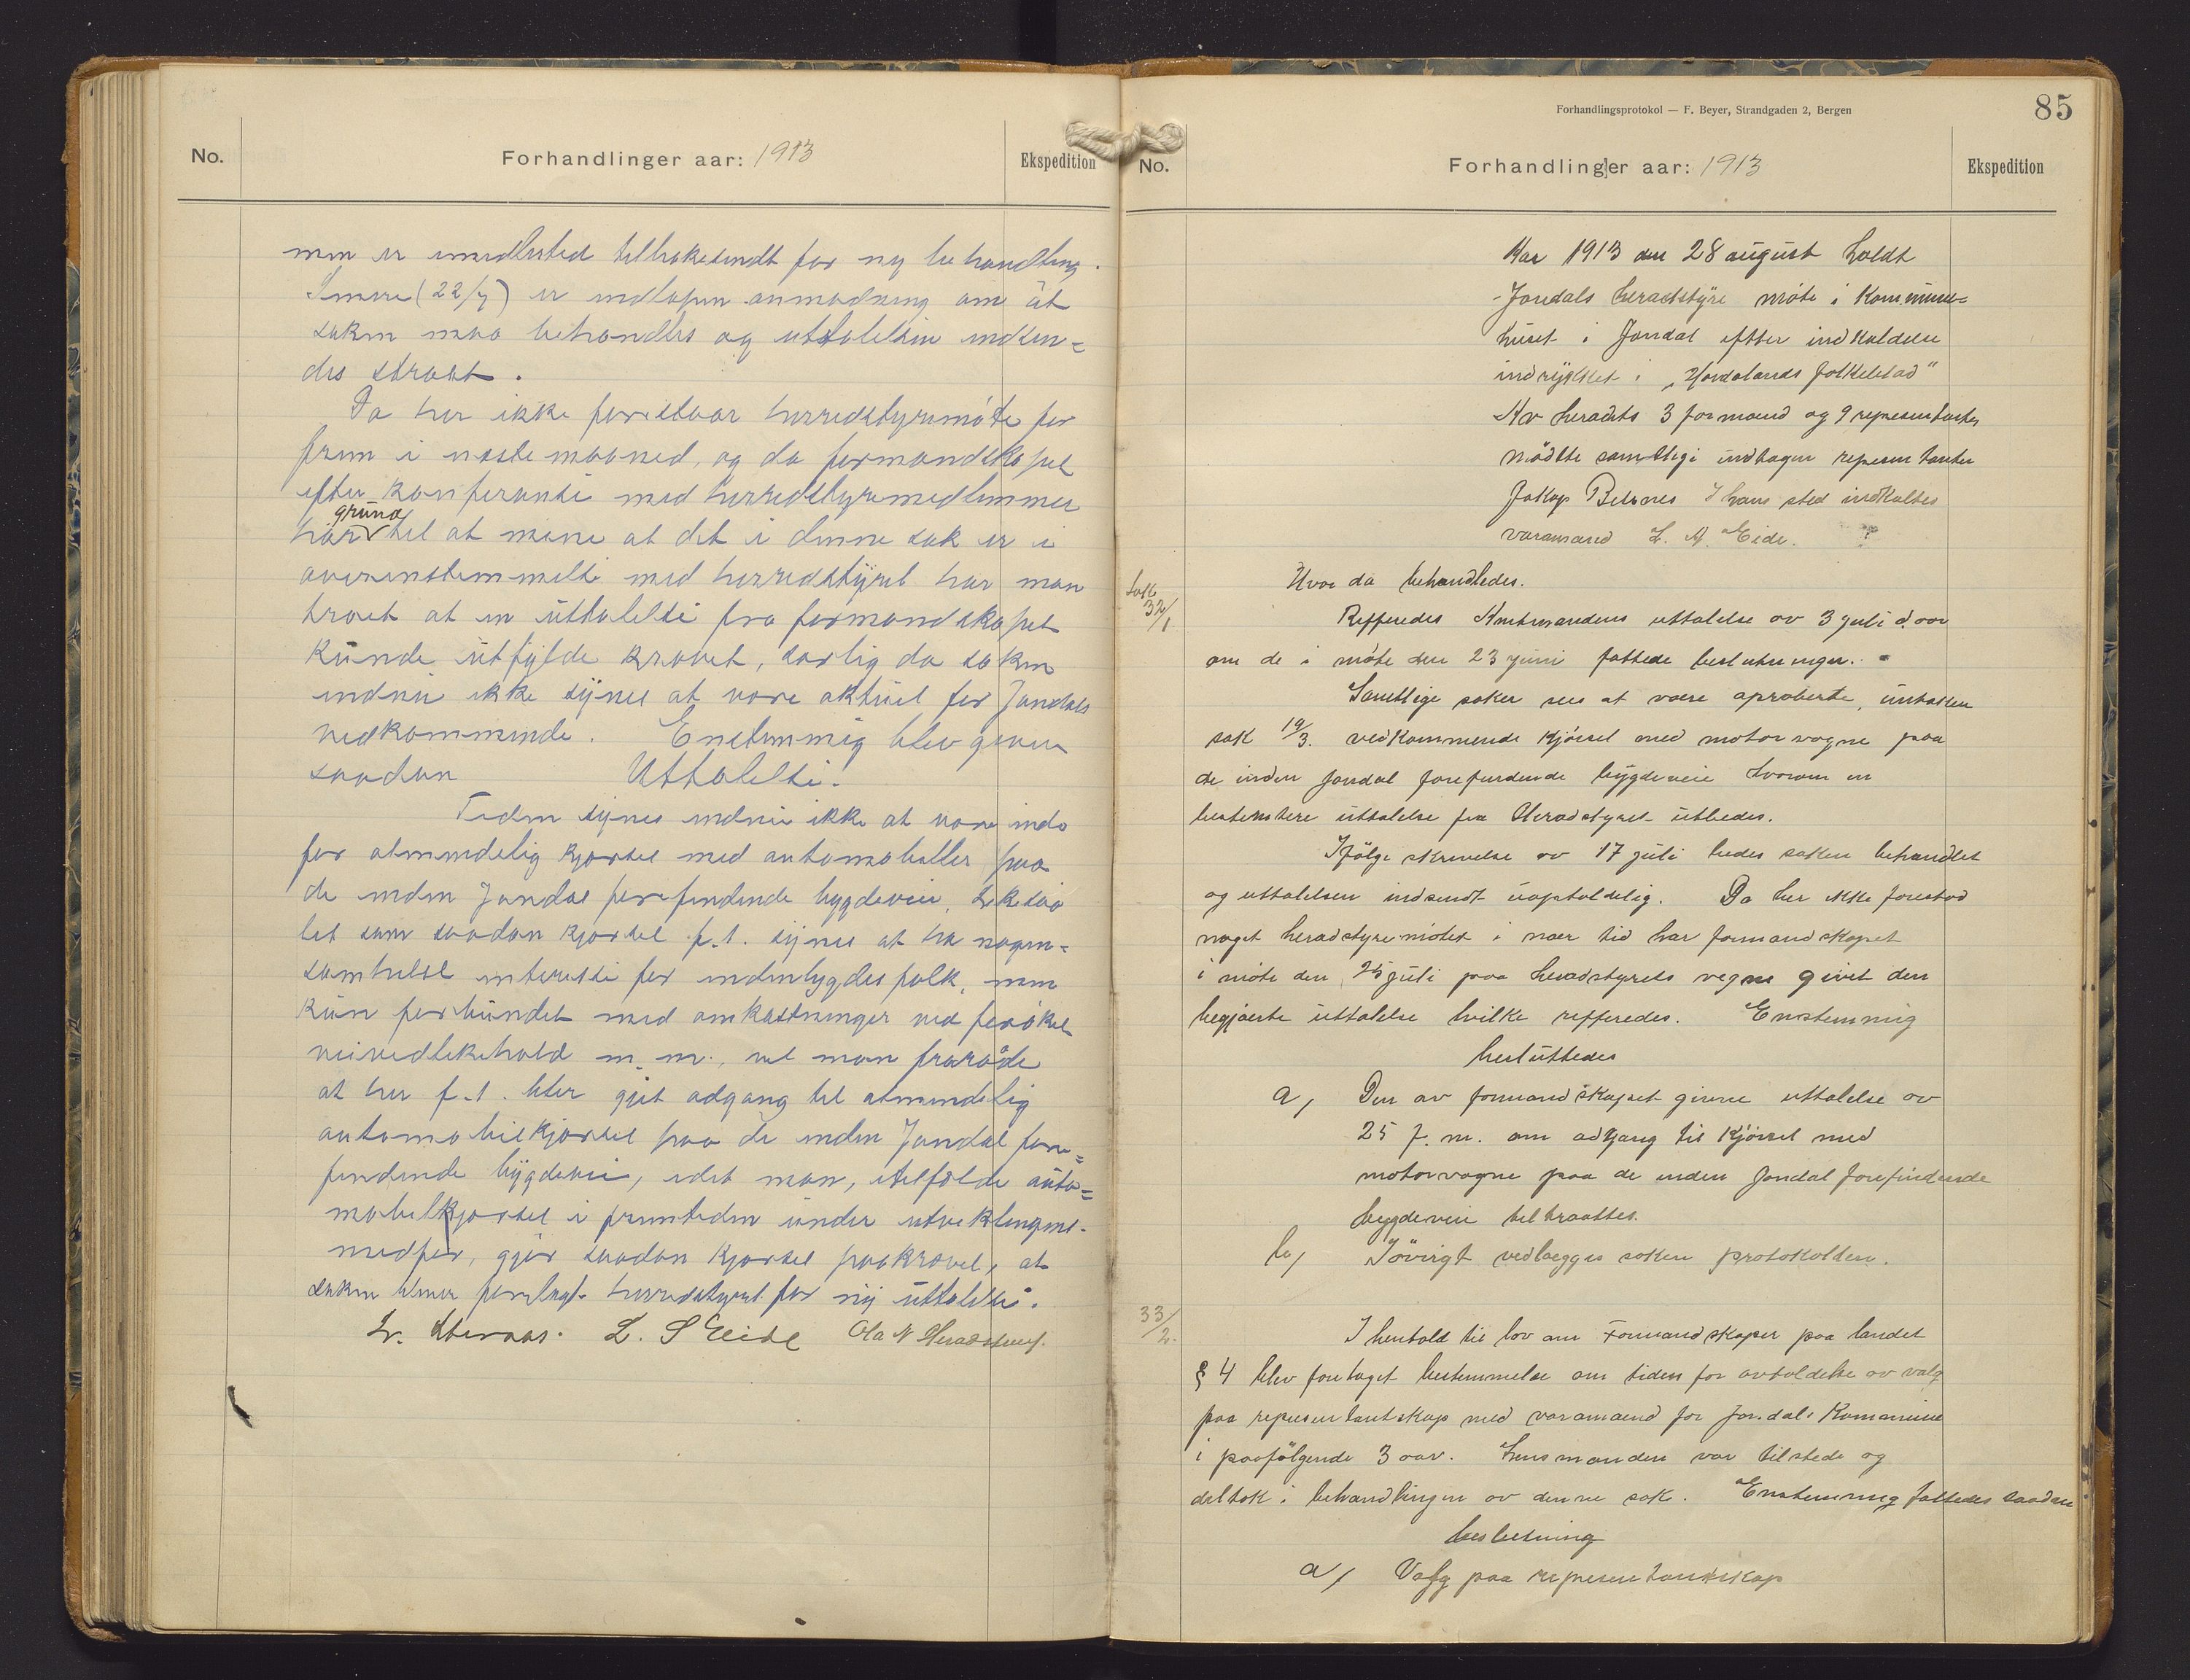 No.
Forhandlinger aar: 1913
Ekspedition
men er imidlertid tilbakesendt for ny behandling.
Senere (22/7) er indløpen anmodning om at
saken maa behandles og uttalelsen indsen=
des straks.
Da her ikke forestaar herredstyremøte før
frem i næste maaned, og da formandskapet
efter konferanse med herredstyremedlemmer
har grund til at mene at det i denne sak er i
overenstemmelse med herredstyret har man
troet at en uttalelse fra formandskapet
kunde utfylde kravet, særlig da saken
endnu ikke synes at være aktuel for Jondals
vedkommende. Enstemmig blev given
saadan Uttalelse.
Tiden synes endnu ikke at være inde
for almindelig kjørsel med automobiller paa
de inden Jondal forefindende bygdeveie, likesaa
litt som saadan kjørsel f.t. synes at ha nogen=
somhelst interesse for indenbygdes folk, men
kun forbundet med omkostninger ved forøket
veivedlikehold m.m., vil man fraraade
at her f.t. blir gjit adgang til almindelig
automobilkjørsel paa de inden Jondal fore=
findende bygdeveie, idet man, itilfælde auto=
mobilkjørsel i fremtiden under utviklingens
medfør, gjør saadan kjørsel paakrævet, at
saken bliver forelagt herredstyret for ny uttalelse.
L. S Eide Ola N Heradstveit.
85
Forhandlingsprotokol — F. Beyer, Strandgaden 2, Bergen
No.
Forhandlinger aar: 1913
Ekspedition
Aar 1913 den 28 august holdt
Jondals heradstyre møte i Kommune=
huset i Jondal efter indkaldelse
indrykket i „Hordalands folkeblad"
Av heradets 3 formænd og 9 representanter
mødte samtlige undtagen representanten
Jakop Belsnes I hans sted indkaltes
varamand L. A. Eide.
Sak
32/1
Hvor da behandledes.
Refferedes Amtmandens uttalelse av 3 juli d. aar
om de i møte den 23 juni fattede beslutninger.
Samtlige saker sees at være aproberte, untaken
sak 19/3. vedkommende kjørsel med motorvogne paa
de inden Jondal forefindende bygdeveie hvorom en
bestemtere uttalelse fra Heradstyret utbedes.
Ifølge skrivelse av 17 juli bedes saken behandlet
og uttalelsen indsendt uopholdelig. Da her ikke forestod
noget heradstyremøtet i nær tid har formandskapet
i møte den 25 juli paa heradstyrets vegne givet den
begjærte uttalelse hvilke refferedes. Enstemmig
besluttedes
a, Den av formandskapet givene uttalelse av
25 f. m. om adgang til kjørsel med
motorvogne paa de inden Jondal forefindende
bygdeveie tiltraattes.
b, Iøvrigt vedlægges saken protokollen.
33/2.
I henhold til lov om Formandskaper paa landet
§ 4 blev foretaget bestemmelse om tiden for avholdelse av valg
paa representantskap med varamænd for Jondals Kommune
i paafølgende 3 aar. Lensmanden var tilstede og
deltok i behandlingen av denne sak. Enstemmig fattedes saadan
beslutning
a, Valg paa representantskap